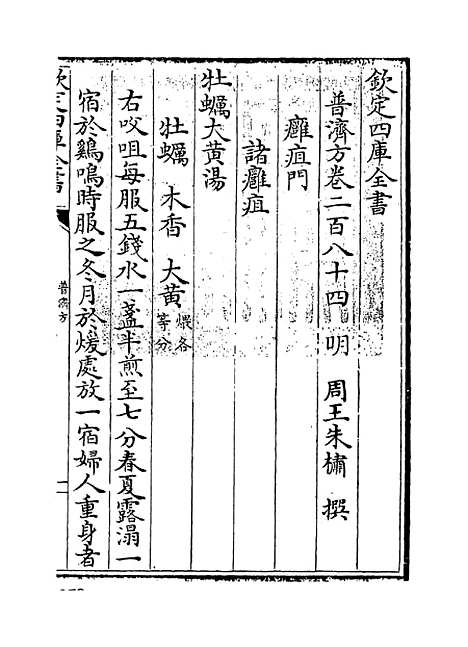 欽定四庫全書
普濟方卷二百八十四 明 周王朱橚 撰
癰疽門
諸癰疽
牡蠣大黃湯
牡蠣 木香 大黃 煨各等分
右㕮咀每服五錢水一盞半煎至七分春夏露濕一
宿於鷄鳴時服之冬月於煖處放一宿婦人重身者
欽定四庫全書
普濟方
一